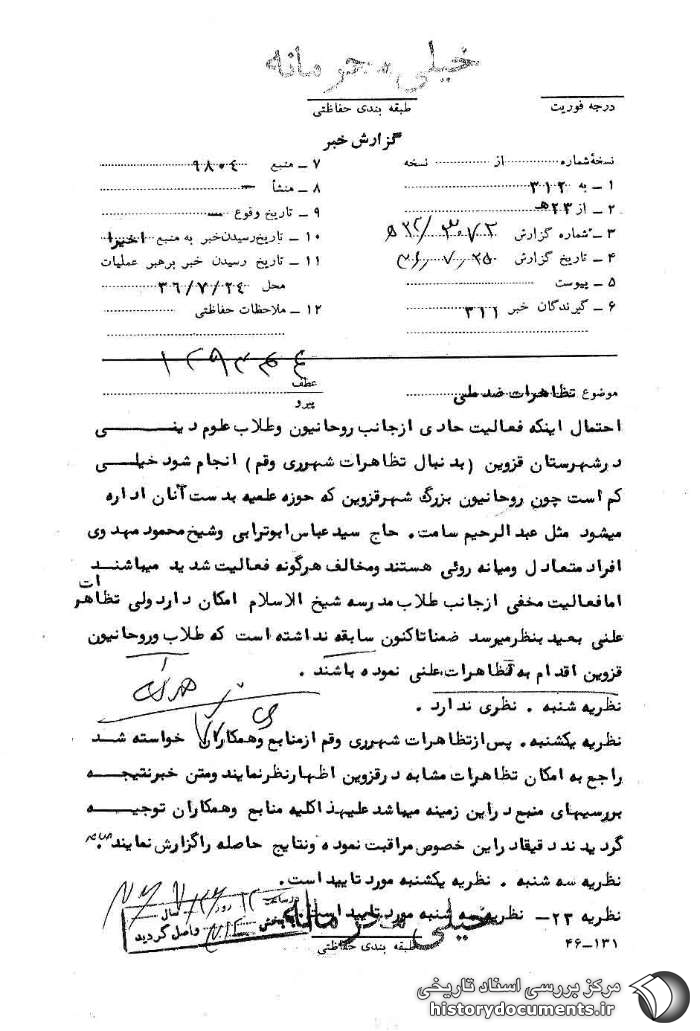 خیلی محرمانه
درجه فوریت
طبقه بندی حفاظتی
گزارش خبر
نسخهٔ شماره از نسخه
۱ ـ به ۳۱۲
۲ ـ از ۲۳هـ
۳ ـ شماره گزارش
۴ ـ تاریخ گزارش
۵ ـ پیوست
۶ ـ گیرندگان خبر ۳۱۱
۷ ـ منبع ۹۸۰۴
۸ ـ منشأ ـ
۹ ـ تاریخ وقوع ـ
۱۰ ـ تاریخ رسیدن خبر به منبع اخیرا
۱۱ ـ تاریخ رسیدن خبر برهبر عملیات
محل ۳۶/۷/۲۴
۱۲ ـ ملاحظات حفاظتی
موضوع تظاهرات ضد ملی
عطف
پیرو
احتمال اینکه فعالیت حادی ازجانب روحانیون وطلاب علوم دینی
درشهرستان قزوین (بدنبال تظاهرات شهرری وقم) انجام شود خیلی
کم است چون روحانیون بزرگ شهرقزوین که حوزه علمیه بدست آنان اداره
میشود مثل عبدالرحیم سامت. حاج سید عباس ابوترابی وشیخ محمود مهدوی
افراد متعادل ومیانه روئی هستند ومخالف هرگونه فعالیت شدید میباشند
امافعالیت مخفی ازجانب طلاب مدرسه شیخ الاسلام امکان دارد ولی تظاهرات
علنی بعید بنظرمیرسد ضمنا تاکنون سابقه نداشته است که طلاب وروحانیون
قزوین اقدام به تظاهرات علنی نموده باشند .
نظریه شنبه . نظری ندارد .
نظریه یکشنبه. پس ازتظاهرات شهرری وقم ازمنابع وهمکاران خواسته شد
راجع به امکان تظاهرات مشابه درقزوین اظهارنظرنمایند ومتن خبرنتیجه
بررسیهای منبع دراین زمینه میباشد علیهذا کلیه منابع وهمکاران توجیه
گردیدند دقیقا دراین خصوص مراقبت نموده ونتایج حاصله راگزارش نمایند
نظریه سه شنبه . نظریه یکشنبه مورد تایید است.
نظریه ۲۳ـ نظریه سه شنبه مورد تایید است
درساعت روز سال
به بخش واصل گردید
خیلی محرمانه
طبقه بندی حفاظتی
۴۶-۱۳۱
مرکز بررسی اسناد تاریخی
historydocuments.ir